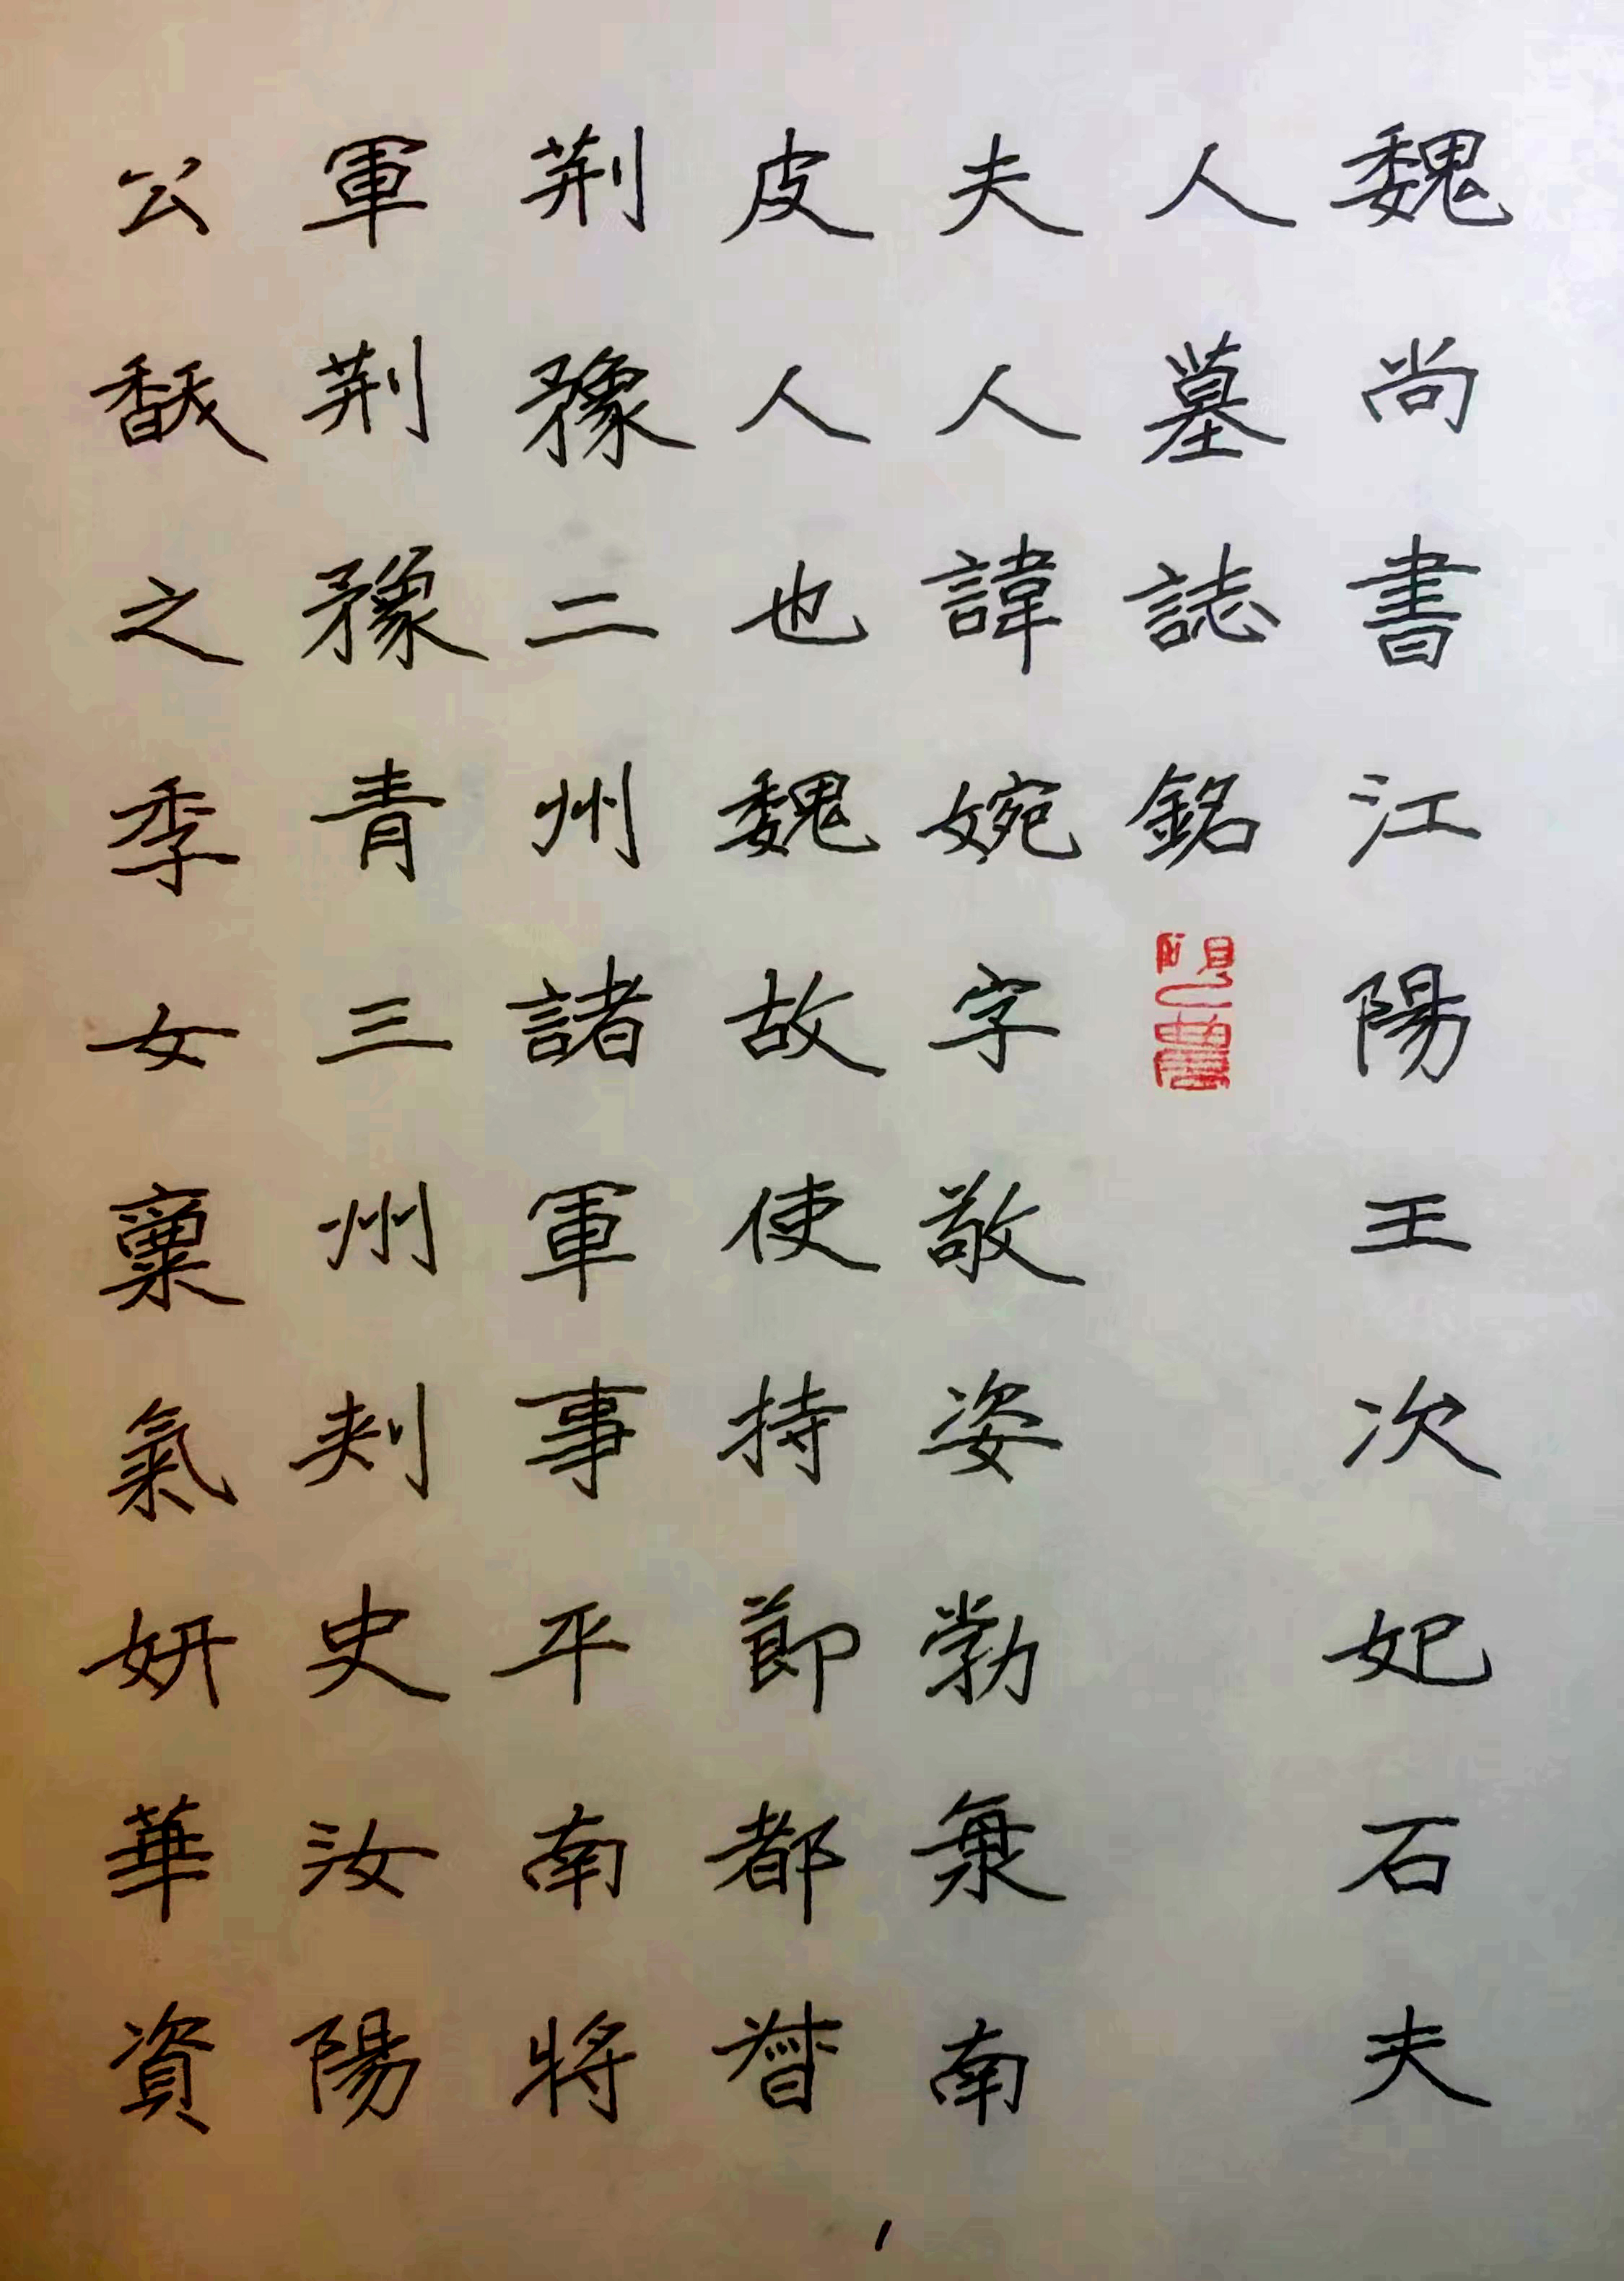 魏尚書江陽王次妃石夫
人墓誌銘
夫人諱婉字敬姿勃海南
皮人也魏故使持節都督
荆豫二州諸軍事平南將
軍荆豫青三州刾史汝陽
公馛之季女稟氣妍華資
1